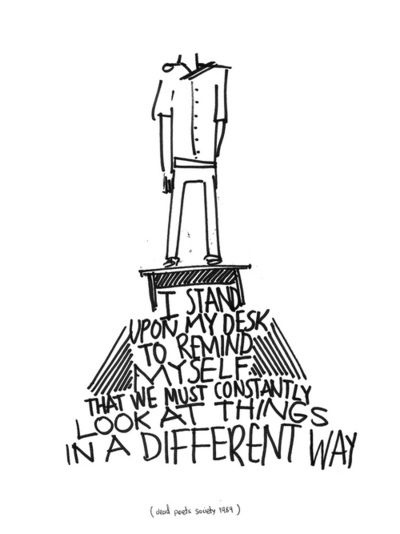 I STAND
UPON MY DESK
TO REMIND
MYSELF
THAT WE MUST CONSTANTLY
LOOK AT THINGS
IN A DIFFERENT WAY
(dead poets society 1989)